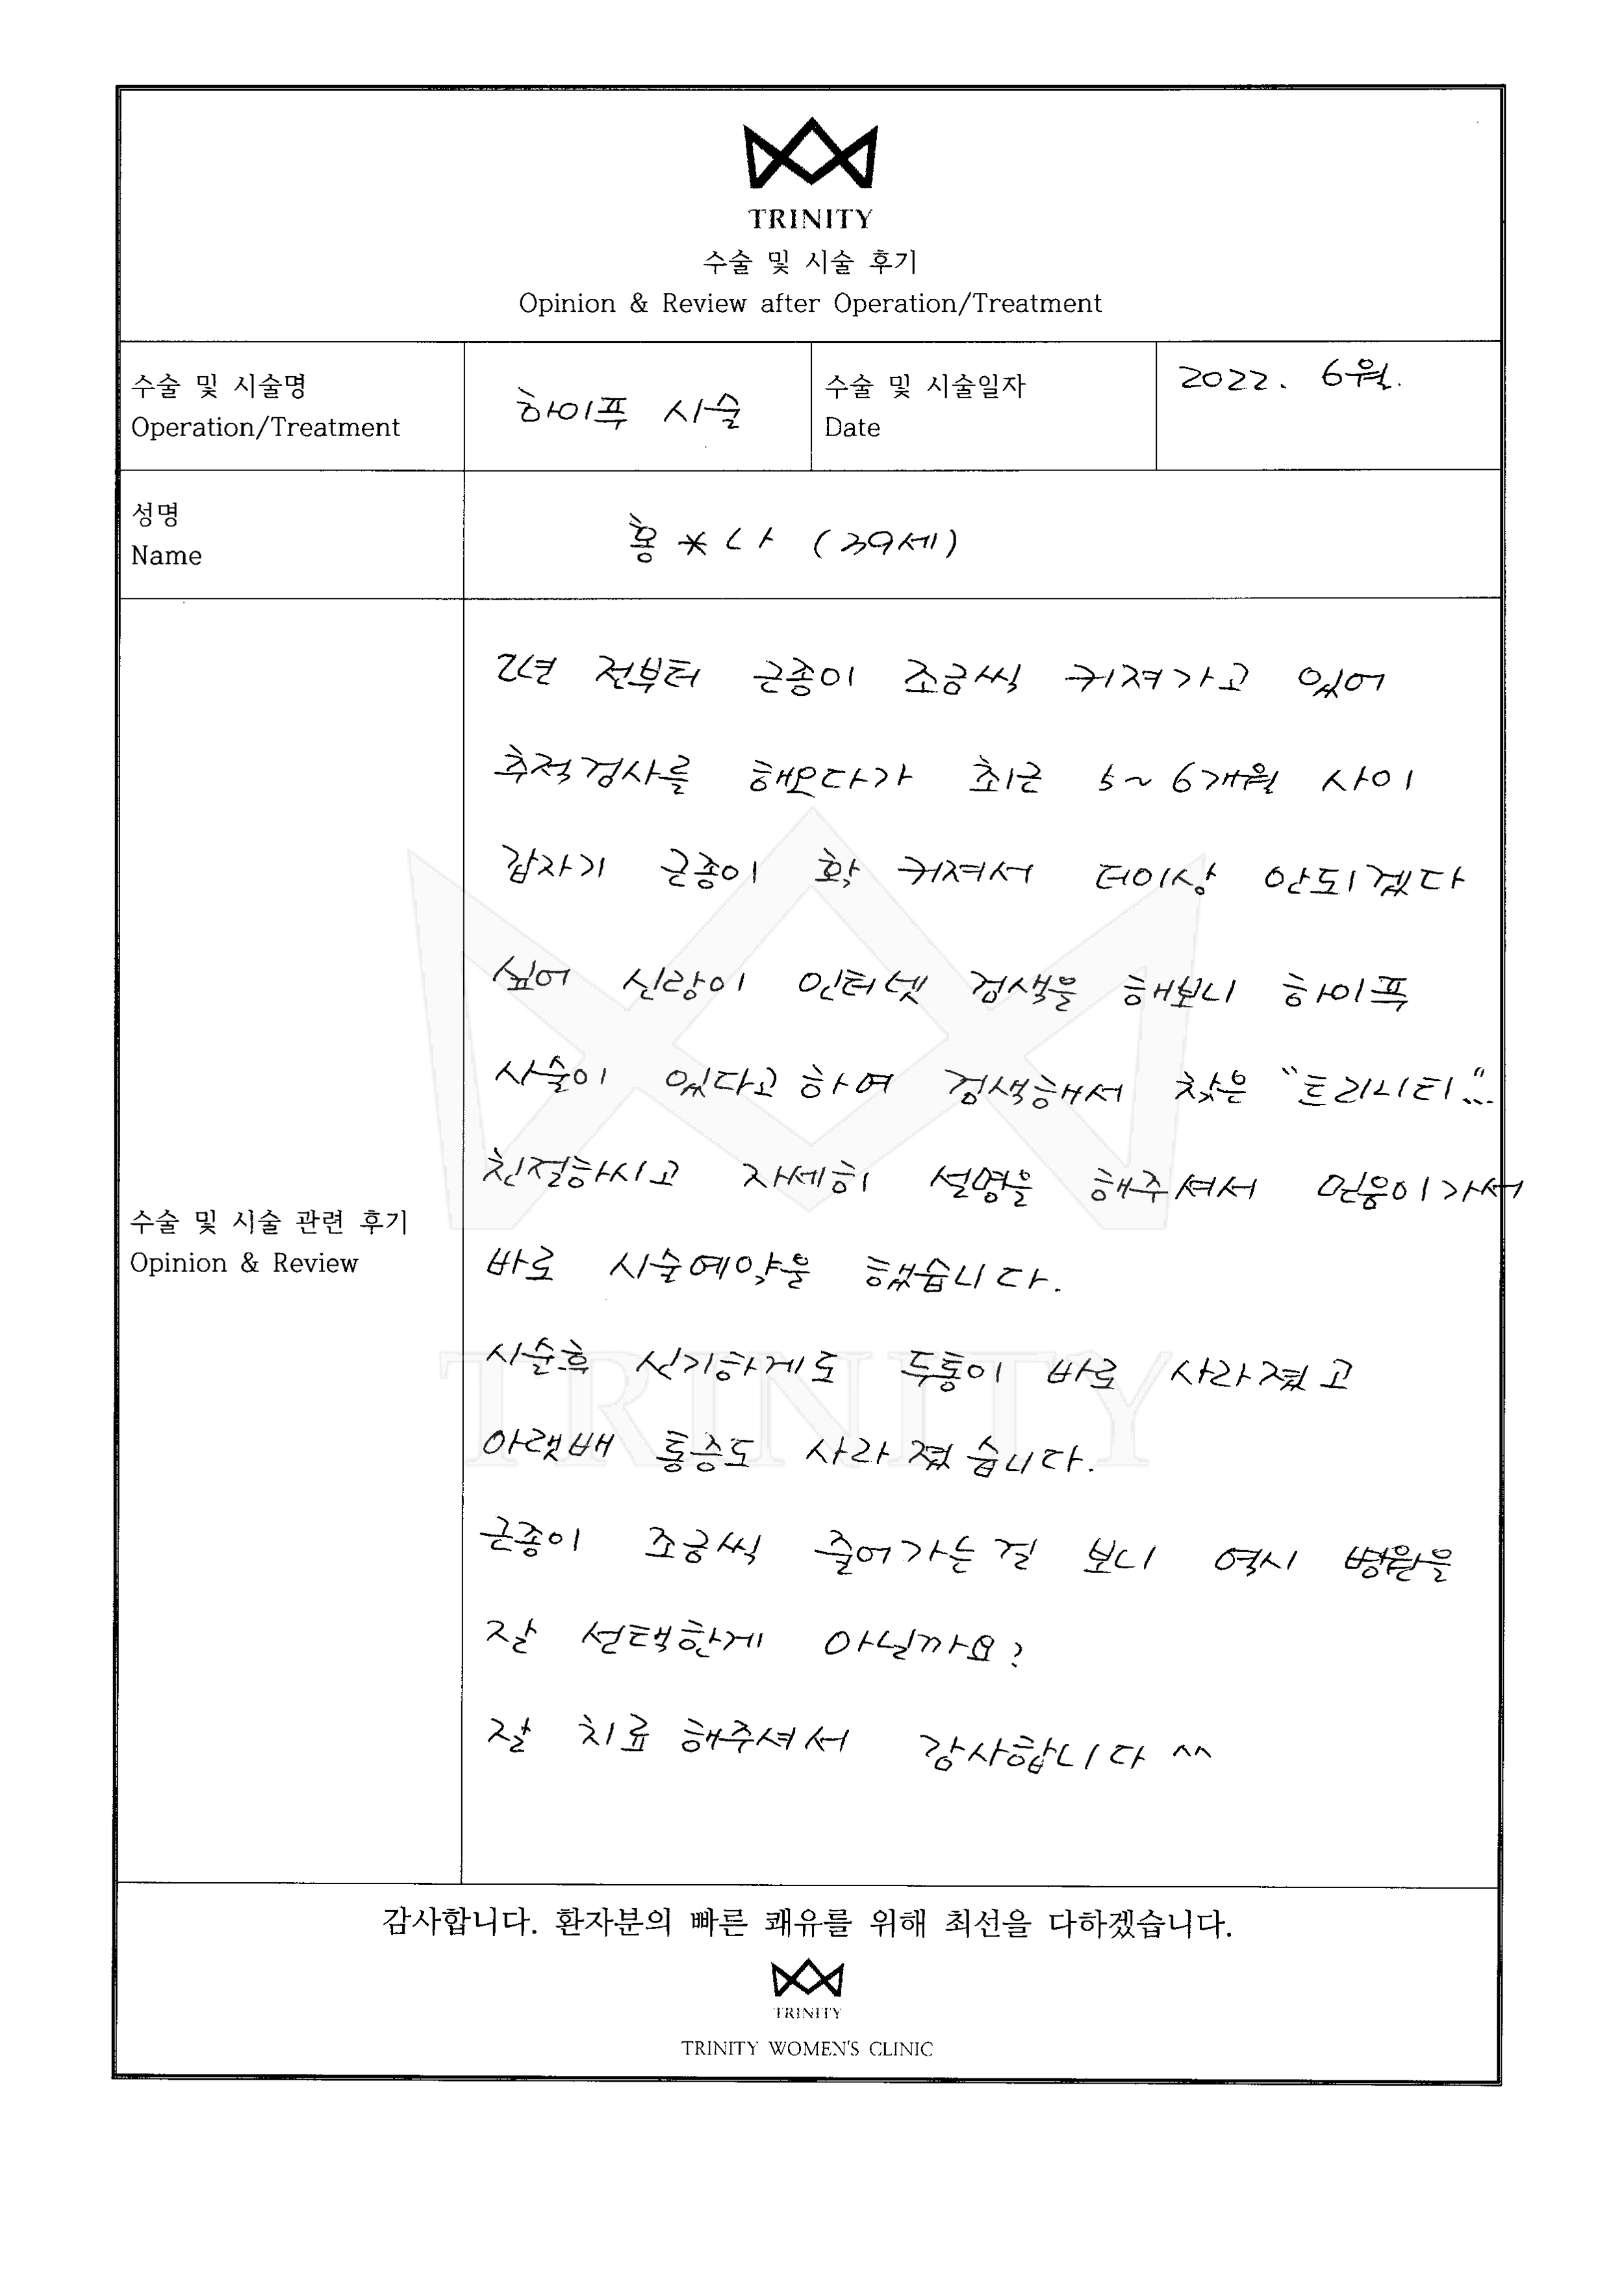 TRINITY
수술 및 시술 후기
Opinion & Review after Operation/Treatment
수술 및 시술명
Operation/Treatment
하이프 시술
수술 및 시술일자
Date
2022. 6월.
성명
Name
홍*나 (39세)
수술 및 시술 관련 후기
Opinion & Review
2년 전부터 근종이 조금씩 커져가고 있어
추적검사를 해오다가 최근 5~6개월 사이
갑자기 근종이 확 커져서 더이상 안되겠다
싶어 신랑이 인터넷 검색을 해보니 하이프
사술이 있다고 하여 검색해서 찾은 "트리니티"...
친절하시고 자세히 설명을 해주셔서 믿음이가서
바로 시술예약을 했습니다.
시술후 신기하게도 두통이 바로 사라졌고
아랫배 통증도 사라졌습니다.
근종이 조금씩 줄어가는걸 보니 역시 병원을
잘 선택한게 아닐까요?
잘 치료해주셔서 감사합니다 ^^
TRINITY
감사합니다. 환자분의 빠른 쾌유를 위해 최선을 다하겠습니다.
TRINITY
TRINITY WOMEN'S CLINIC